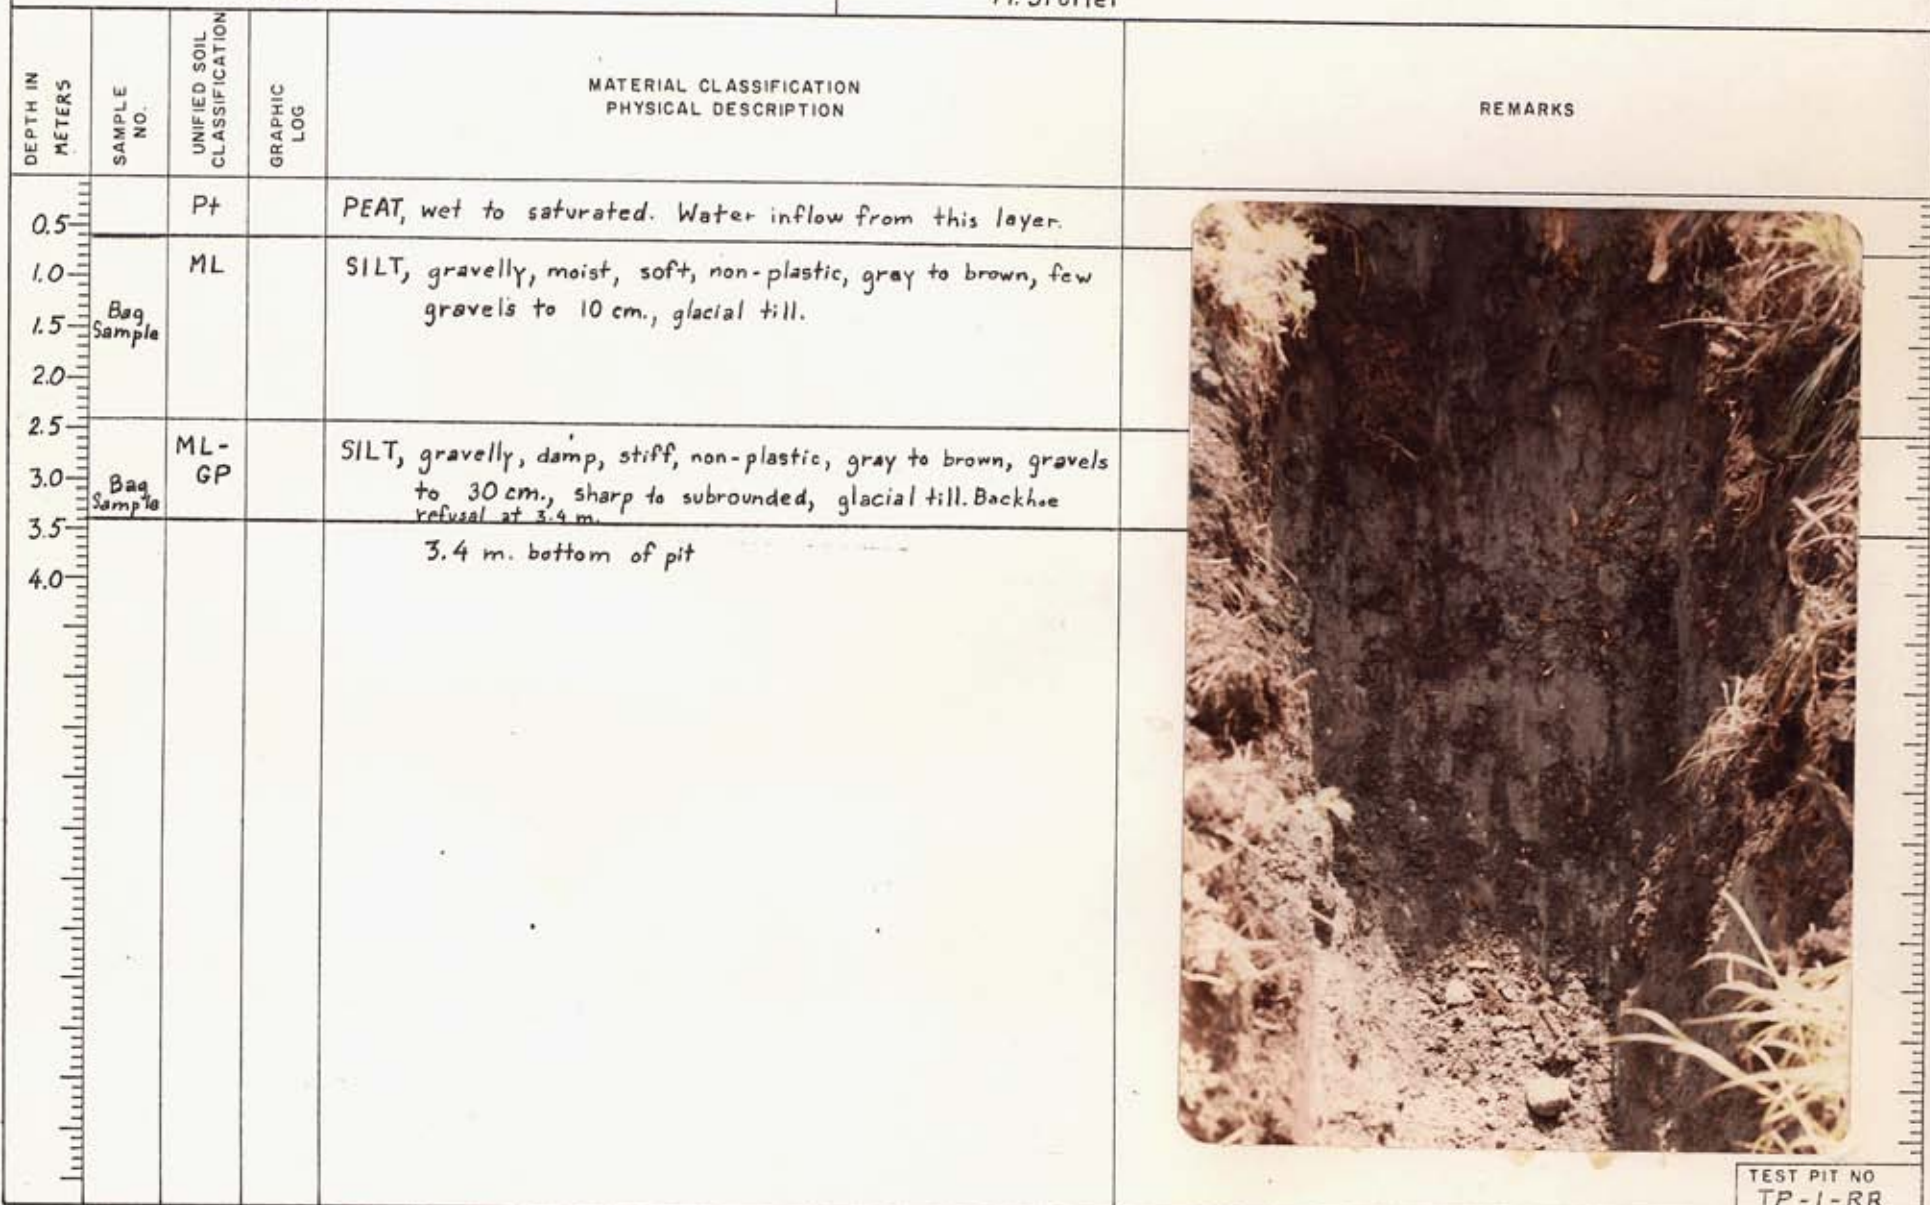 DEPTH IN
METERS
SAMPLE
NO.
UNIFIED SOIL
CLASSIFICATION
GRAPHIC
LOG
MATERIAL CLASSIFICATION
PHYSICAL DESCRIPTION
REMARKS
0.5
Pt
PEAT, wet to saturated. Water inflow from this layer.
1.0
1.5
2.0
Bag
Sample
ML
SILT, gravelly, moist, soft, non-plastic, gray to brown, few
gravels to 10 cm., glacial till.
2.5
3.0
Bag
Sample
ML-
GP
SILT, gravelly, damp, stiff, non-plastic, gray to brown, gravels
to 30 cm., sharp to subrounded, glacial till. Backhoe
refusal at 3.4 m.
3.5
3.4 m. bottom of pit
4.0
TEST PIT NO
TP-1-RR